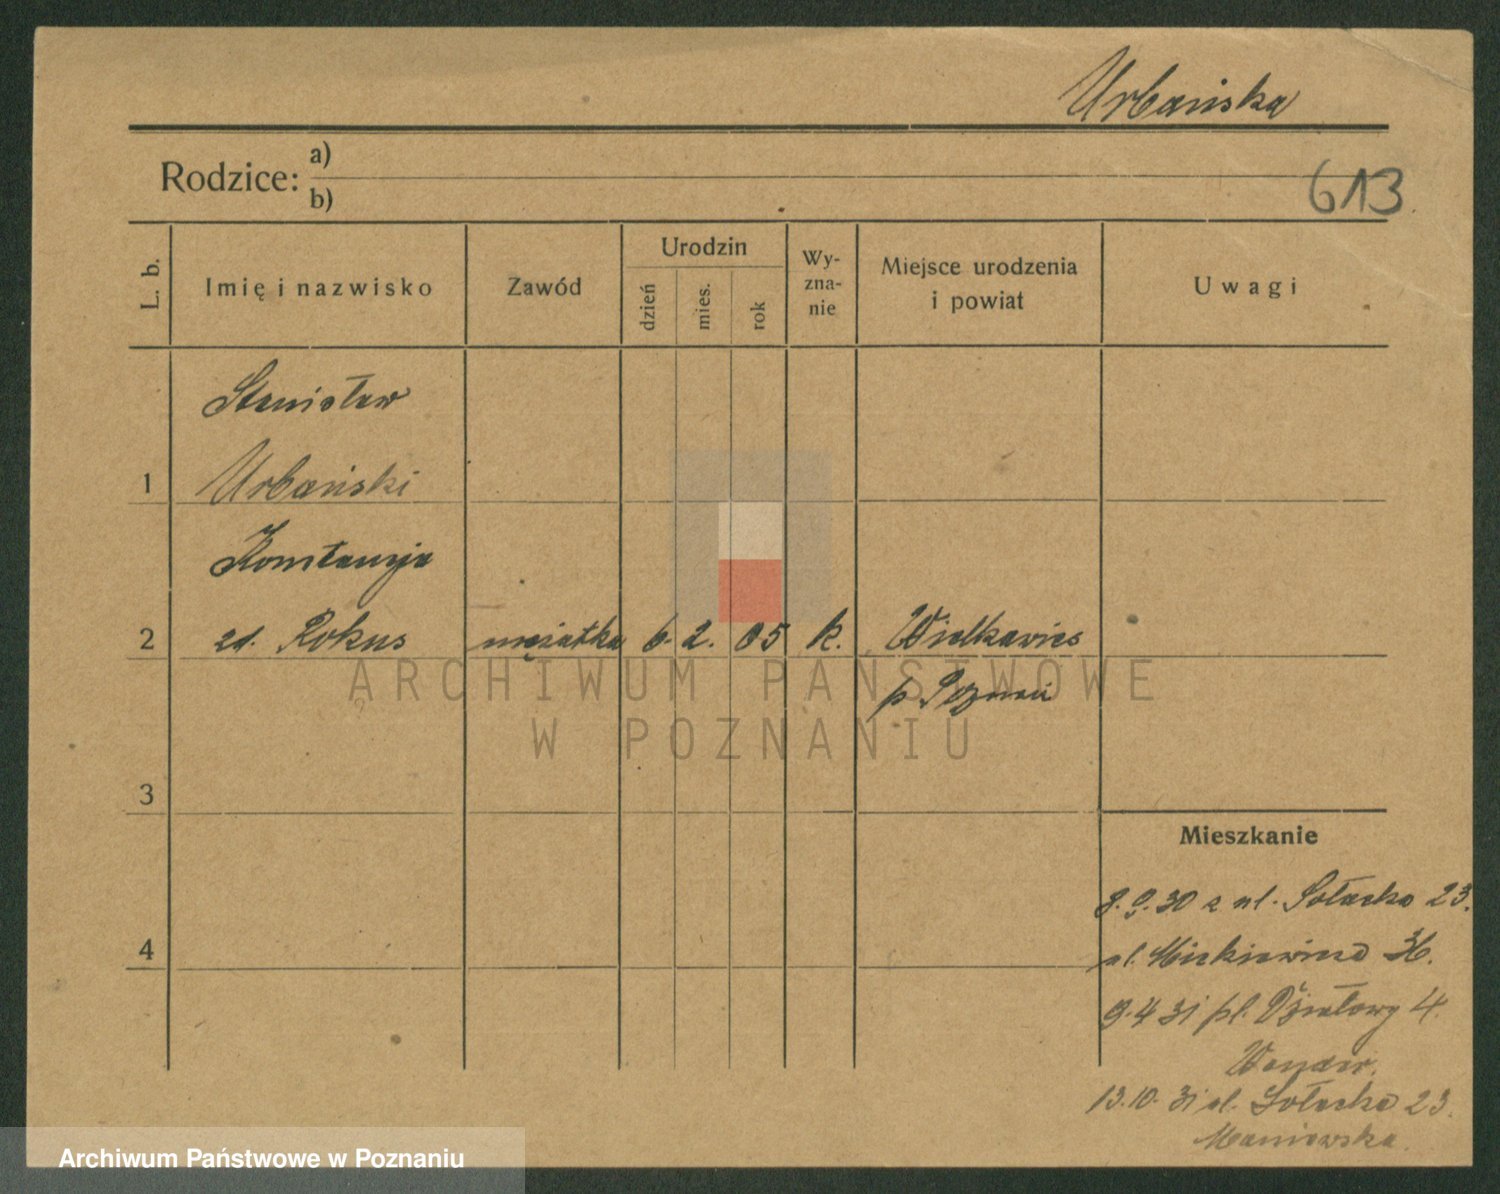 Urbańska
Rodzice:
a)
b)
613
L. b.
Imię i nazwisko
Zawód
Urodzin
dzień
mies.
rok
Wy-
zna-
nie
Miejsce urodzenia
i powiat
Uwagi
Stanisław
1 Urbański
Konstancja
2 zd. Rokus mężatka 6. 2. 05 k. Wielkawieś
p. Poznań
ARCHIWUM PAŃSTWOWE
W POZNANIU
3
Mieszkanie
8.9.30 z ul. Sołacka 23.
4
ul. Mickiewicza 36.
9.4 31 pl. Działowy 4.
13.10. 31 ul. Sołacka 23.
Maniewska.
Archiwum Państwowe w Poznaniu